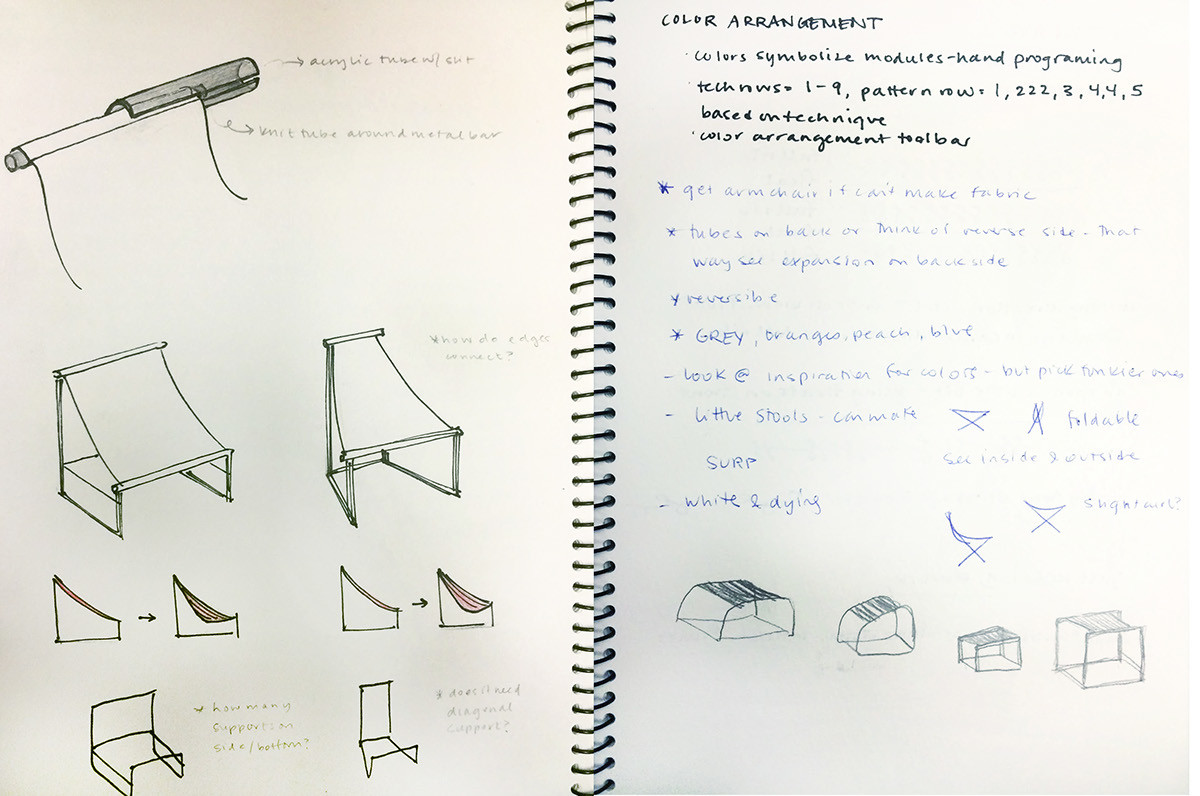 → acrylic tube w/ cut
→ knit tube around metal bar
*how do edges
connect?
* how many
supports on
side/bottom?
* does it need
diagonal
support?
COLOR ARRANGEMENT
· colors symbolize modules-hand programing
· tech rows= 1-9, pattern row= 1, 222, 3, 4,4, 5
based on technique
· color arrangement toolbar
* get armchair if can't make fabric
* tubes on back or think of reverse side - that
way see expansion on backside
* reversible
* GREY, oranges, peach, blue
- look @ inspiration for colors - but pick funkier ones
- little stools - can make
foldable
SURP
see inside & outside
- white & dying
slight curl?